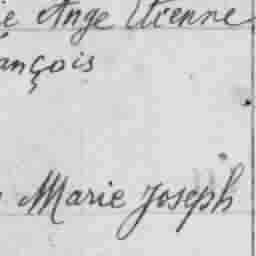 Ange Etienne
ançois
Marie Joseph